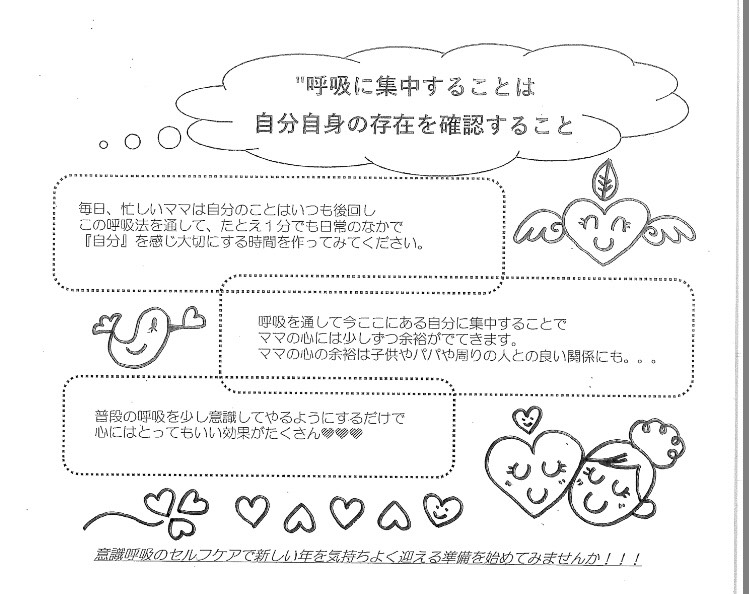 "呼吸に集中することは
自分自身の存在を確認すること
毎日、忙しいママは自分のことはいつも後回し
この呼吸法を通して、たとえ１分でも日常のなかで
『自分』を感じ大切にする時間を作ってみてください。
呼吸を通して今ここにある自分に集中することで
ママの心には少しずつ余裕がでてきます。
ママの心の余裕は子供やパパや周りの人との良い関係にも。。。
普段の呼吸を少し意識してやるようにするだけで
心にはとってもいい効果がたくさん♥♥♥
意識呼吸のセルフケアで新しい年を気持ちよく迎える準備を始めてみませんか！！！